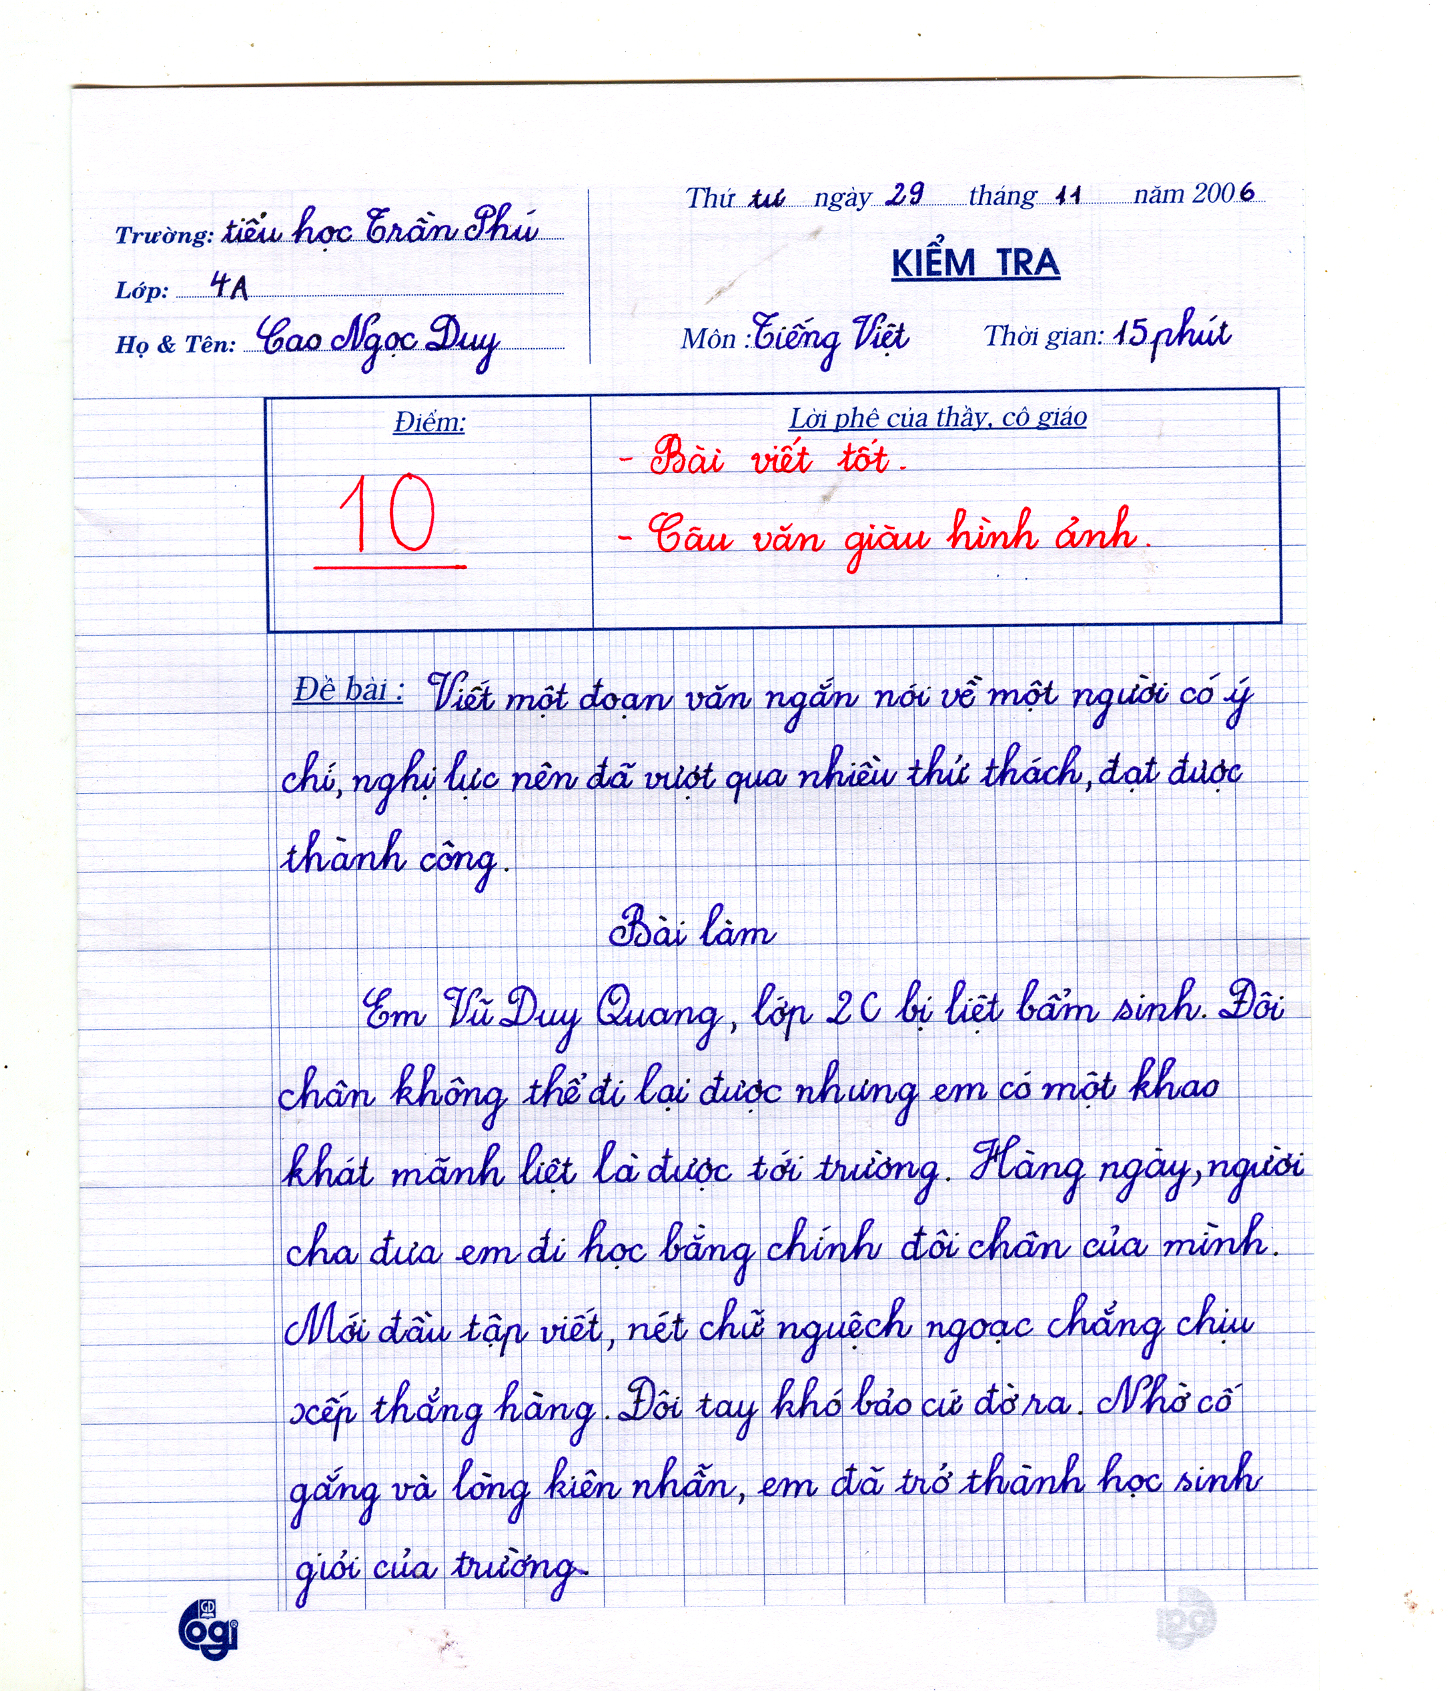 Thứ tư ngày 29 tháng 11 năm 2006
Trường: tiểu học Trần Phú
Lớp: 4A
Họ & Tên: Cao Ngọc Duy
KIỂM TRA
Môn : Tiếng Việt Thời gian: 15 phút
Điểm:
10
Lời phê của thầy, cô giáo
- Bài viết tốt.
- Câu văn giàu hình ảnh.
Đề bài : Viết một đoạn văn ngắn nói về một người có ý
chí, nghị lực nên đã vượt qua nhiều thử thách, đạt được
thành công.
Bài làm
Em Vũ Duy Quang, lớp 2C bị liệt bẩm sinh. Đôi
chân không thể đi lại được nhưng em có một khao
khát mãnh liệt là được tới trường. Hàng ngày, người
cha đưa em đi học bằng chính đôi chân của mình.
Mới đầu tập viết, nét chữ nguệch ngoạc chẳng chịu
xếp thẳng hàng. Đôi tay khó bảo cứ đờ ra. Nhờ cố
gắng và lòng kiên nhẫn, em đã trở thành học sinh
giỏi của trường.
GD
Cogi